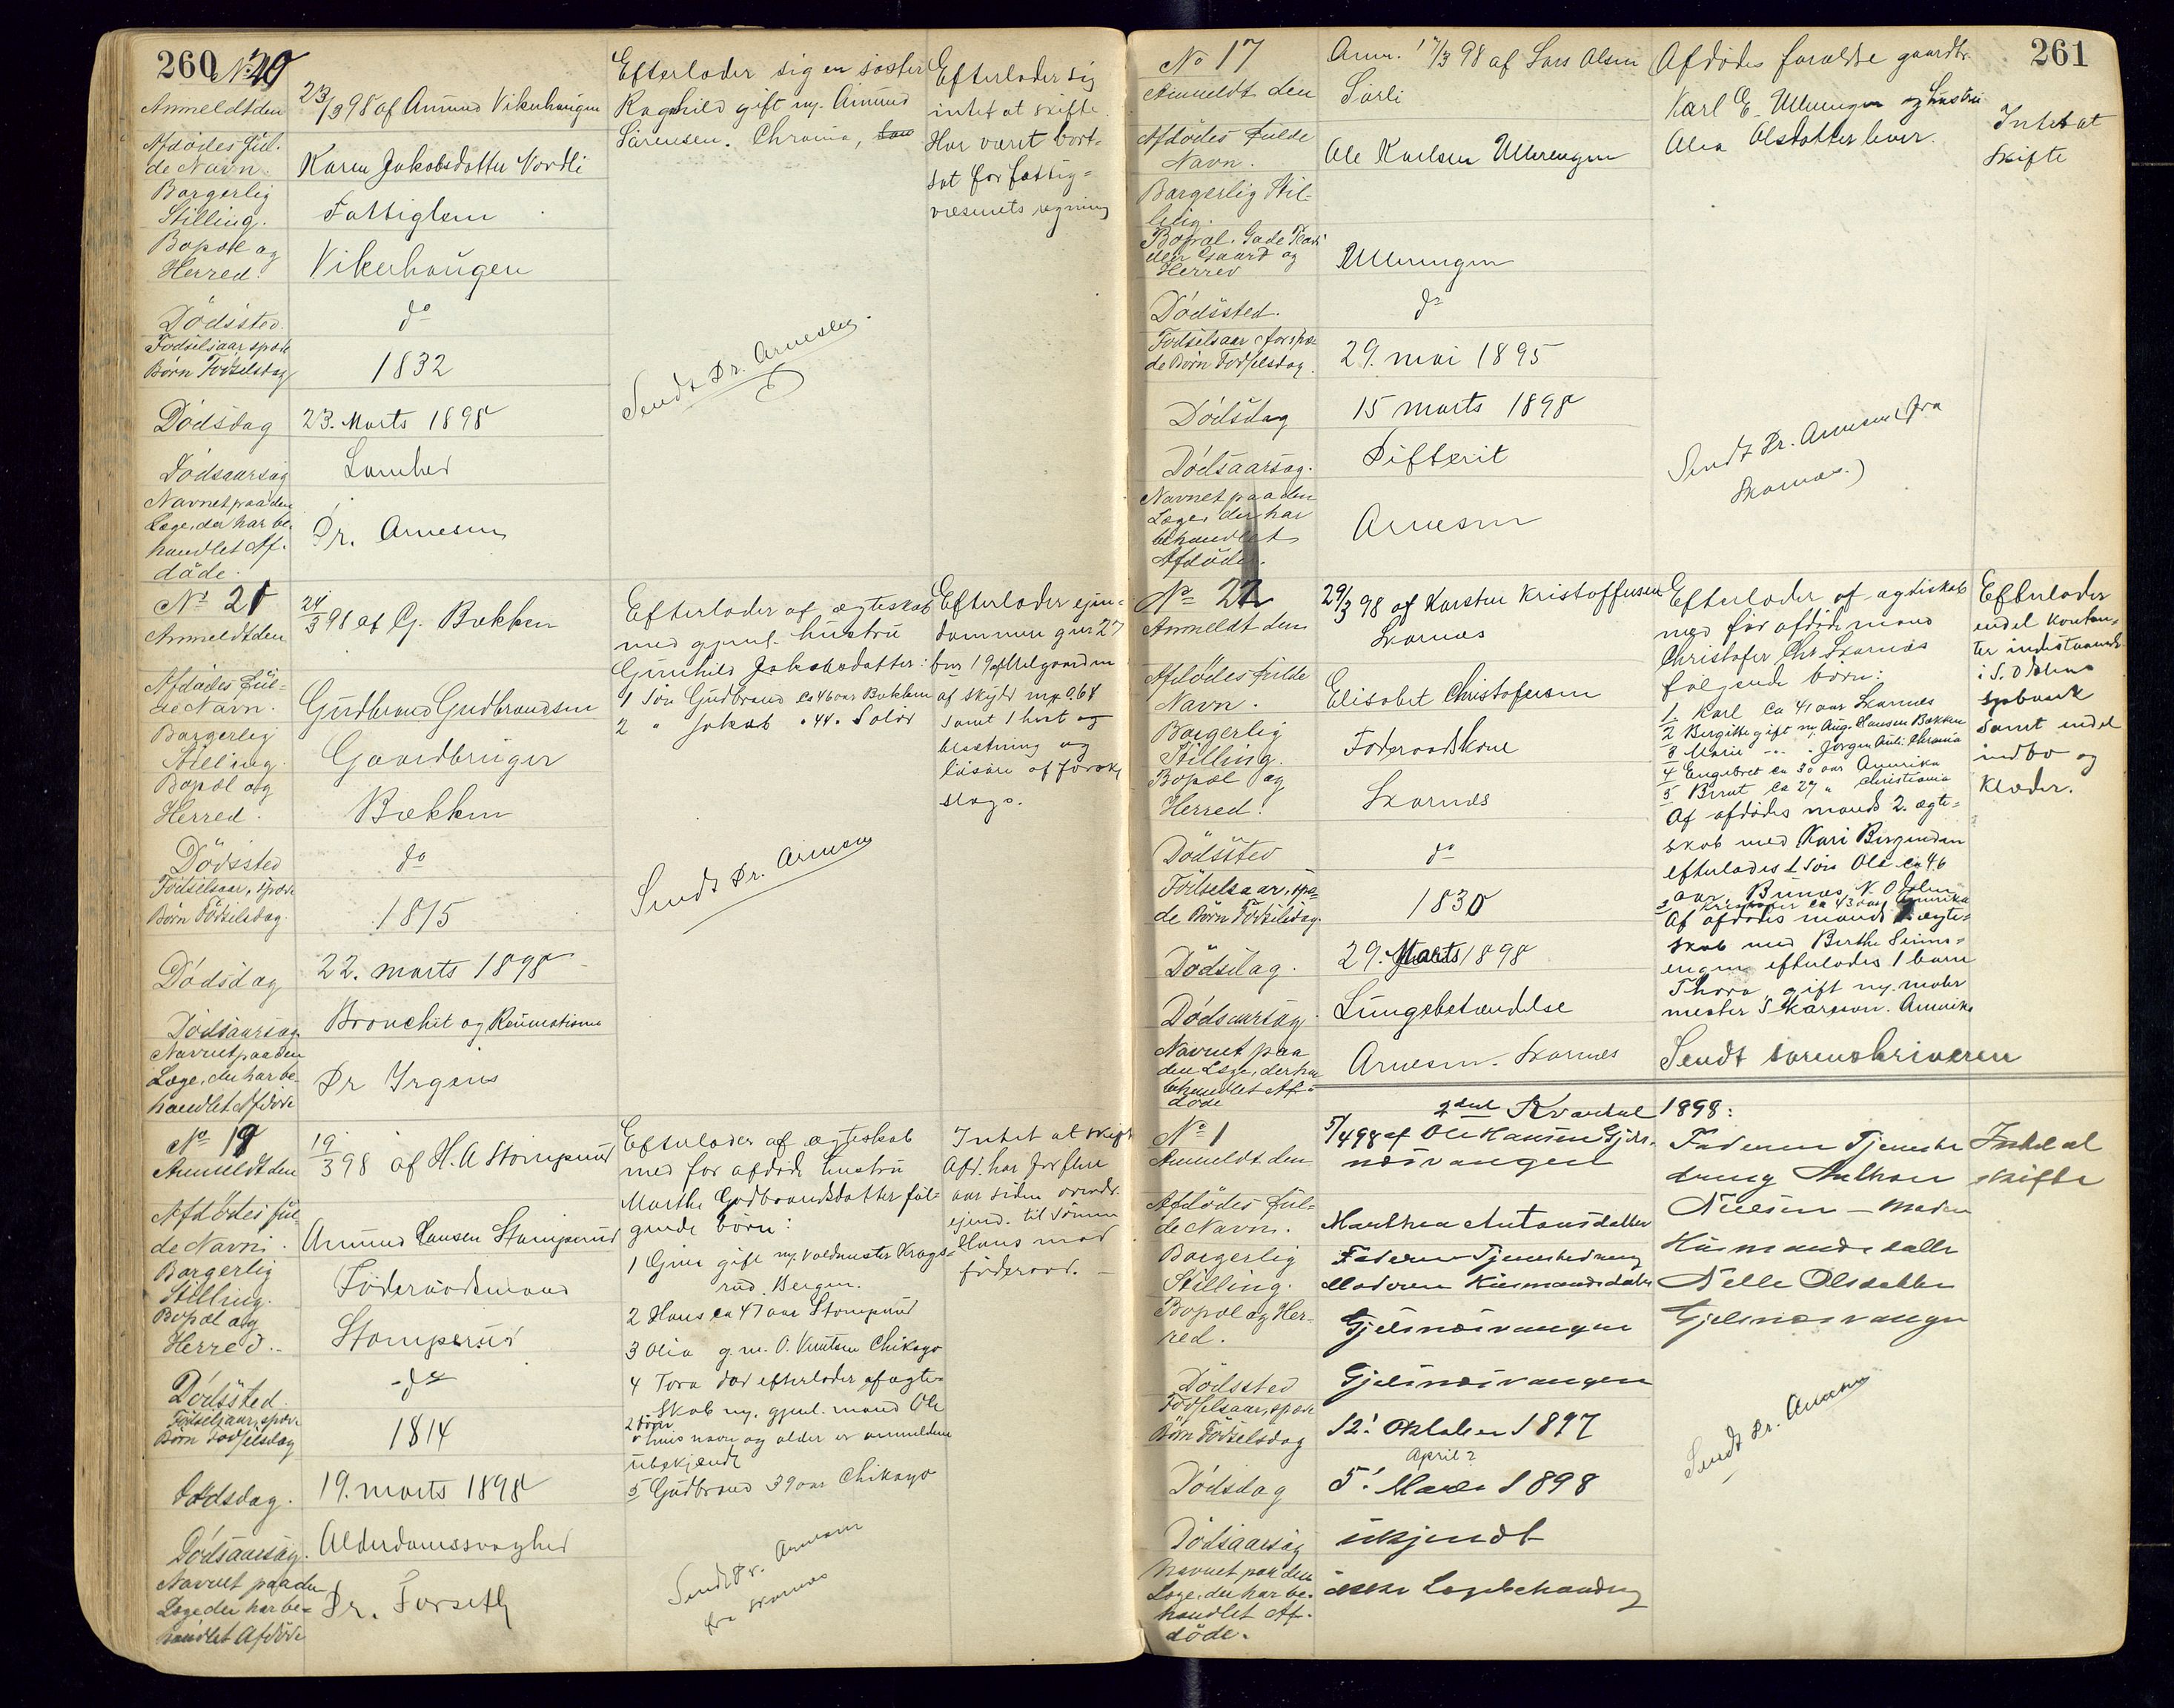 260 No 20
Anmeldt den 23/3 98 af Amund Vikerhaugen
Afdödes ful-
de Navn. Karen Jakobsdatter Nordli
Borgerlig
Stilling. Fattiglem
Bopæl og
Herred. Vikerhaugen
Dödssted. do
Födselsaar, spæde
Börn Födselsdag 1832
Dödsdag 23. Marts 1898
Dödsaarsag Lamhed
Navnet paa den
Læge, der har be-
handlet Af-
döde. Dr. Arnesen
Efterlader sig en søster
Ragnhild gift m. Amund
Sörensen. Chrania,
Sendt Dr. Arnesen.
Efterlader sig
intet at skifte.
Har været bort-
sat for fattig-
væsenets regning
No 21
Anmeldt den 24/3 98 af G. Bækken
Afdödes Ful-
de Navn. Gudbrand Gudbrandsen
Borgerlig
Stilling. Gaardbruger
Bopæl og
Herred. Bækken
Dödssted do
Födselsaar, spæde
Börn Födselsdag. 1815
Dödsdag 22. marts 1898
Dödsaarsag Bronchit og Reumatisme
Navnet paa den
Læge, der har be-
handlet Afdöde Dr Irgens
Efterlader af ægteskab
med gjenl. hustru
Gunhild Jakobsdatter:
1 Sön Gudbrand ca 46 aar Bækken
2 " Jakob " 44 " Solör
Sendt Dr. Arnesen
Efterlader ejen-
dommen gnr 27
bnr 19 af Melgaarden
af skyld mrk 0.68
samt 1 hest og
besætning og
lösöre af forskj
slags.
No 19
Anmeldt den 19/3 98 af H. A Stomperud
Afdödes ful-
de Navn. Amund Hansen Stomperud
Borgerlig
Stilling. Föderaadsmand
Bopæl og
Herred. Stomperud
Dödssted. do
Födselsaar, spæde
Börn Födselsdag 1814
Dödsdag. 19. marts 1898
Dödsaarsag. Alderdomssvaghed
Navnet paa den
Læge der har be-
handlet Afdöde Dr. Forseth
Efterlader af ægteskab
med för afdöde hustru
Marthe Gudbrandsdatter föl-
gende börn:
1 Gina gift m. Valdmester Krags-
rud. Bergen.
2 Hans ca 47 aar Stomperud
3 Olia g. m. O. Knutsen Chikago
4 Tora död efterlader af ægte-
skab m. gjenl. mand Ole
2 börn
hvis navn og alder er anmelderen
ubekjendt
5 Gudbrand 39 aar Chikago
Sendt Dr. Arnesen
fra Skarnes
Intet at skifte
Afd. har for flere
aar siden overdr.
ejend. til sönnen
Hans mod
föderaad.
261
No 17
Anmeldt den Anm. 17/3 98 af Lars Olsen
Sörli
Afdödes Fulde
Navn. Ole Karlsen Ullerengen
Borgerlig Stil-
ling.
Bopæl. Gade
Gaard og
Herred Ullerengen
Dödssted. do
Födselsaar, for spæ-
de Börn Födselsdag. 29. mai 1895
Dödsdag 15 marts 1898
Dödsaarsag. Difterit
Navnet paa den
Læge, der har
behandlet
Afdöde. Arnesen
Afdödes forældre gaardbr.
Karl E. Ullerengen og hustru
Olea Olsdatter lever.
Sendt Dr. Arnesen (fra
Skarnes.)
Intet at
skifte
No 22
Anmeldt den 29/3 98 af Karsten Kristoffersen
Skarnes
Afdödes Fulde
Navn. Elisabet Christofersen
Borgerlig
Stilling. Föderaadskone
Bopæl og
Herred. Skarnes
Dödssted do
Födselsaar, spæ-
de Börn Födselsdag. 1830
Dödsdag. 29. Marts 1898
Dödsaarsag. Lungebetændelse
Navnet paa
den Læge, der har
behandlet Af-
döde Arnesen. Skarnes
Efterlader af ægteskab
med för afdöde mand
Christofer Chr. Skarnes
følgende börn:
1 Karl ca 41 aar Skarnes
2 Birgitte gift m. Aug. Hansen Bækken
3 Marie " " " Jørgen Chrania
4 Engebret ca 30 aar Amerika
5 Bernt ca 27 " Christiania
Af afdödes mands 2. ægte-
skab med Kari
efterlades 1 Sön Ole ca 46
aar, N. Odalen
2 Kristoffer ca 43 aar Amerika
Af afdödes mands ægte-
skab med Berthe
efterlades 1 barn
Thora, gift m. maler
mester Amerika
Sendt sorenskriveren
Efterlader
endel kontan-
ter indestaaende
i S. Odalens
spbank
samt endel
indbo og
klæder.
2det Kvartal 1898:
No 1
Anmeldt den 5/4 98 af Ole Hansen Gjels-
næsvangen
Afdödes Ful-
de Navn. Marthea Antonsdatter
Borgerlig Faderen Tjenestedreng
Stilling. Moderen Husmandsdatter
Bopæl og Her-
red. Gjelsnæsvangen
Dödssted Gjelsnæsvangen
Födselsaar, spæde
Börn Födselsdag 12' Oktober 1897
April?
Dödsdag 5' Marts 1898
Dödsaarsag ukjendt
Navnet paa den
Læge, der har be-
handlet Af-
döde. ikke Lægebehandling
Faderen Tjeneste
dreng Anthon
Nilsen – Moderen
Husmandsdatter
Nelle Olsdatter
Gjelsnæsvangen
Sendt Dr. Arnesen
Intet at
skifte